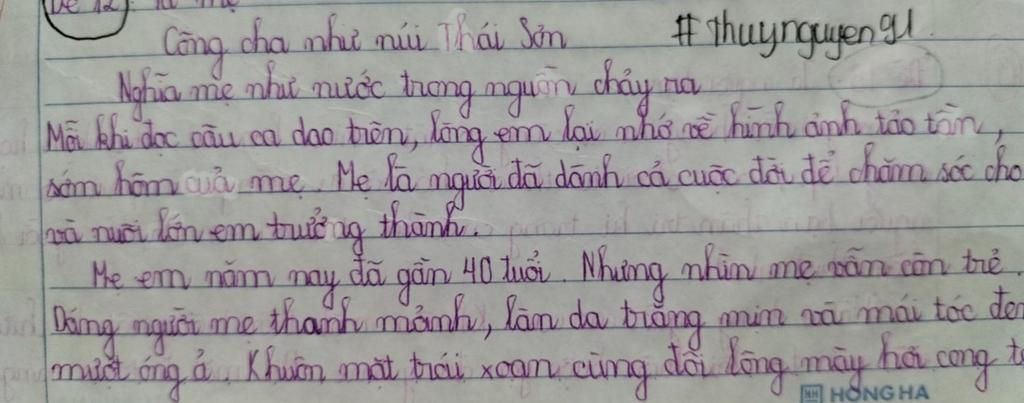 Đề 12: Tả mẹ
Công cha như núi Thái Sơn #thuynguyen91.
Nghĩa mẹ như nước trong nguồn chảy ra
Mỗi khi đọc câu ca dao trên, lòng em lại nhớ về hình ảnh tảo tần,
sớm hôm của mẹ. Mẹ là người đã dành cả cuộc đời để chăm sóc cho
và nuôi lớn em trưởng thành.
Mẹ em năm nay đã gần 40 tuổi. Nhưng nhìn mẹ vẫn còn trẻ.
Dáng người mẹ thanh mảnh, làn da trắng mịn và mái tóc đen
mượt óng ả. Khuôn mặt trái xoan cùng đôi lông mày hơi cong
HH HỒNG HÀ